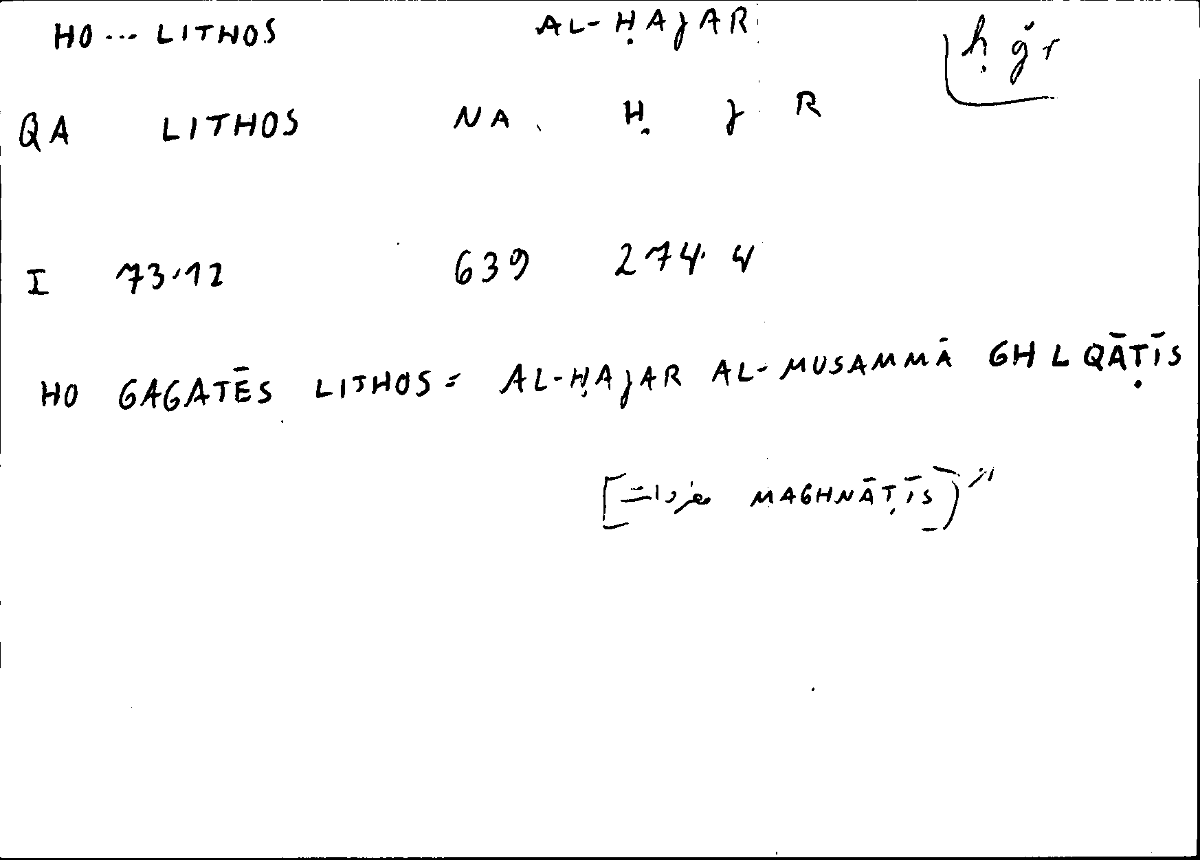 HO ... LITHOS AL-ḤAJAR ḥǧr
QA LITHOS NA Ḥ J R
I 73.12 639 274.4
HO GAGATĒS LITHOS = AL-ḤAJAR AL-MUSAMMĀ GHLQĀṬĪS
[مفردات MAGHNĀṬĪS]